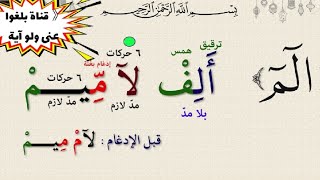 بِسْمِ اللَّهِ الرَّحْمَنِ الرَّحِيمِ
قناة بلغوا
عني ولو آية
الٓمٓ
ترقيق همس
أَلِفْ
بلا مدّ
٦ حركات
لَآ
مدّ لازم
إدغام بغنة
٦ حركات
مِّيـمْ
مدّ لازم
قبل الإدغام : لَآمْ مِيـمْ